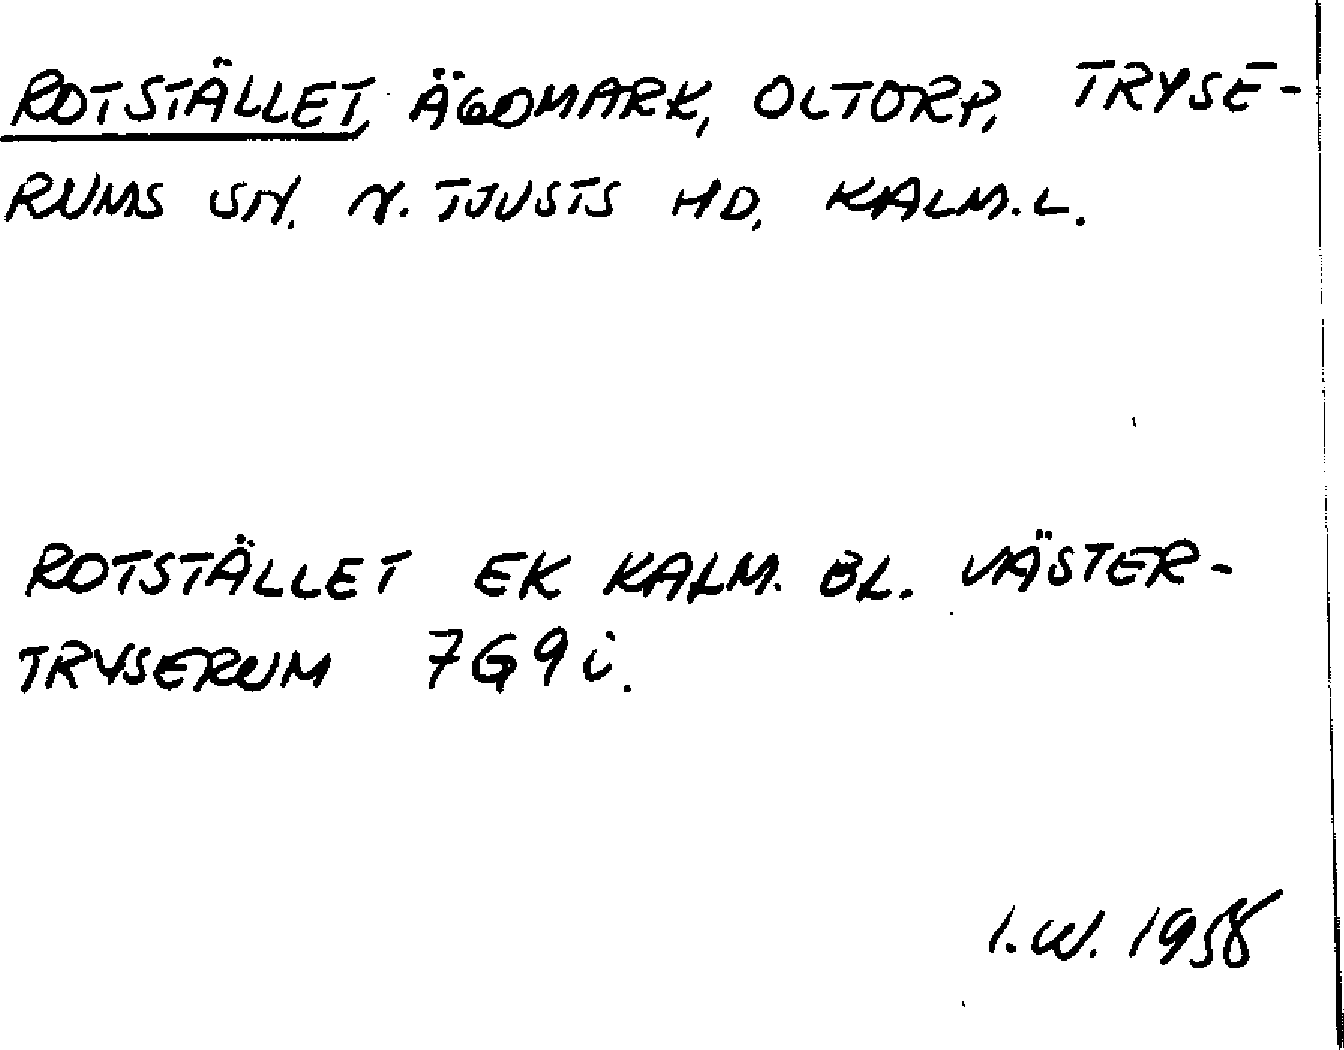 ROTSTÄLLET, ÄGOMARK, OLTORP, TRYSE-
RUMS SN. N. TJUSTS HD, KALM. L.
ROTSTÄLLET EK KALM. BL. VÄSTER-
TRYSERUM 7G9i.
I.W. 1958